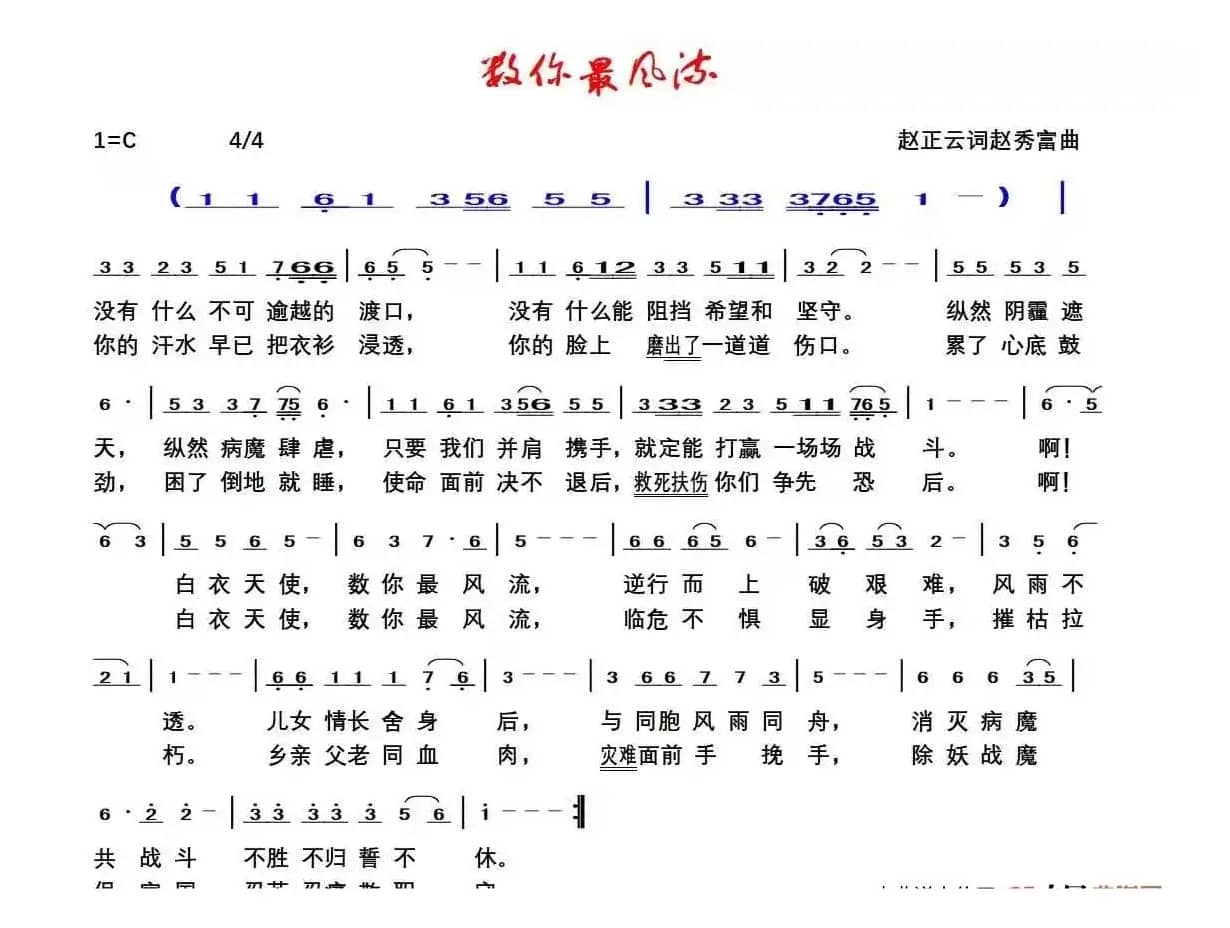 数你最风流
1=C 4/4 赵正云词赵秀富曲
( 1 1 6 1 3 56 5 5 | 3 33 3765 1 — ) |
3 3 2 3 5 1 7 66 | 6 5 5 - - | 1 1 6 12 3 3 5 11 | 3 2 2 - - | 5 5 5 3 5
没有 什么 不可 逾越的 渡口， 没有 什么能 阻挡 希望和 坚守。 纵然 阴霾 遮
你的 汗水 早已 把衣衫 浸透， 你的 脸上 磨出了一道道 伤口。 累了 心底 鼓
6 · | 5 3 3 7 75 6 · | 1 1 6 1 3 56 5 5 | 3 33 2 3 5 11 76 5 | 1 - - - | 6 · 5
天， 纵然 病魔 肆 虐， 只要 我们 并肩 携手，就定能 打赢 一场场 战 斗。 啊！
劲， 困了 倒地 就 睡， 使命 面前 决不 退后，救死扶伤 你们 争先 恐 后。 啊！
6 3 | 5 5 6 5 - | 6 3 7 · 6 | 5 - - - | 6 6 6 5 6 - | 3 6 5 3 2 - | 3 5 6
白 衣 天 使， 数 你 最 风 流， 逆行 而 上 破 艰 难， 风 雨 不
白 衣 天 使， 数 你 最 风 流， 临危 不 惧 显 身 手， 摧 枯 拉
2 1 | 1 - - - | 6 6 1 1 1 7 6 | 3 - - - | 3 6 6 7 7 3 | 5 - - - | 6 6 6 3 5 |
透。 儿女 情长 舍 身 后， 与 同胞 风 雨 同 舟， 消 灭 病 魔
朽。 乡亲 父老 同 血 肉， 灾难面前 手 挽 手， 除 妖 战 魔
6 · 2 2 - | 3 3 3 3 3 5 6 | 1 - - - :|
共 战 斗 不胜 不归 誓 不 休。